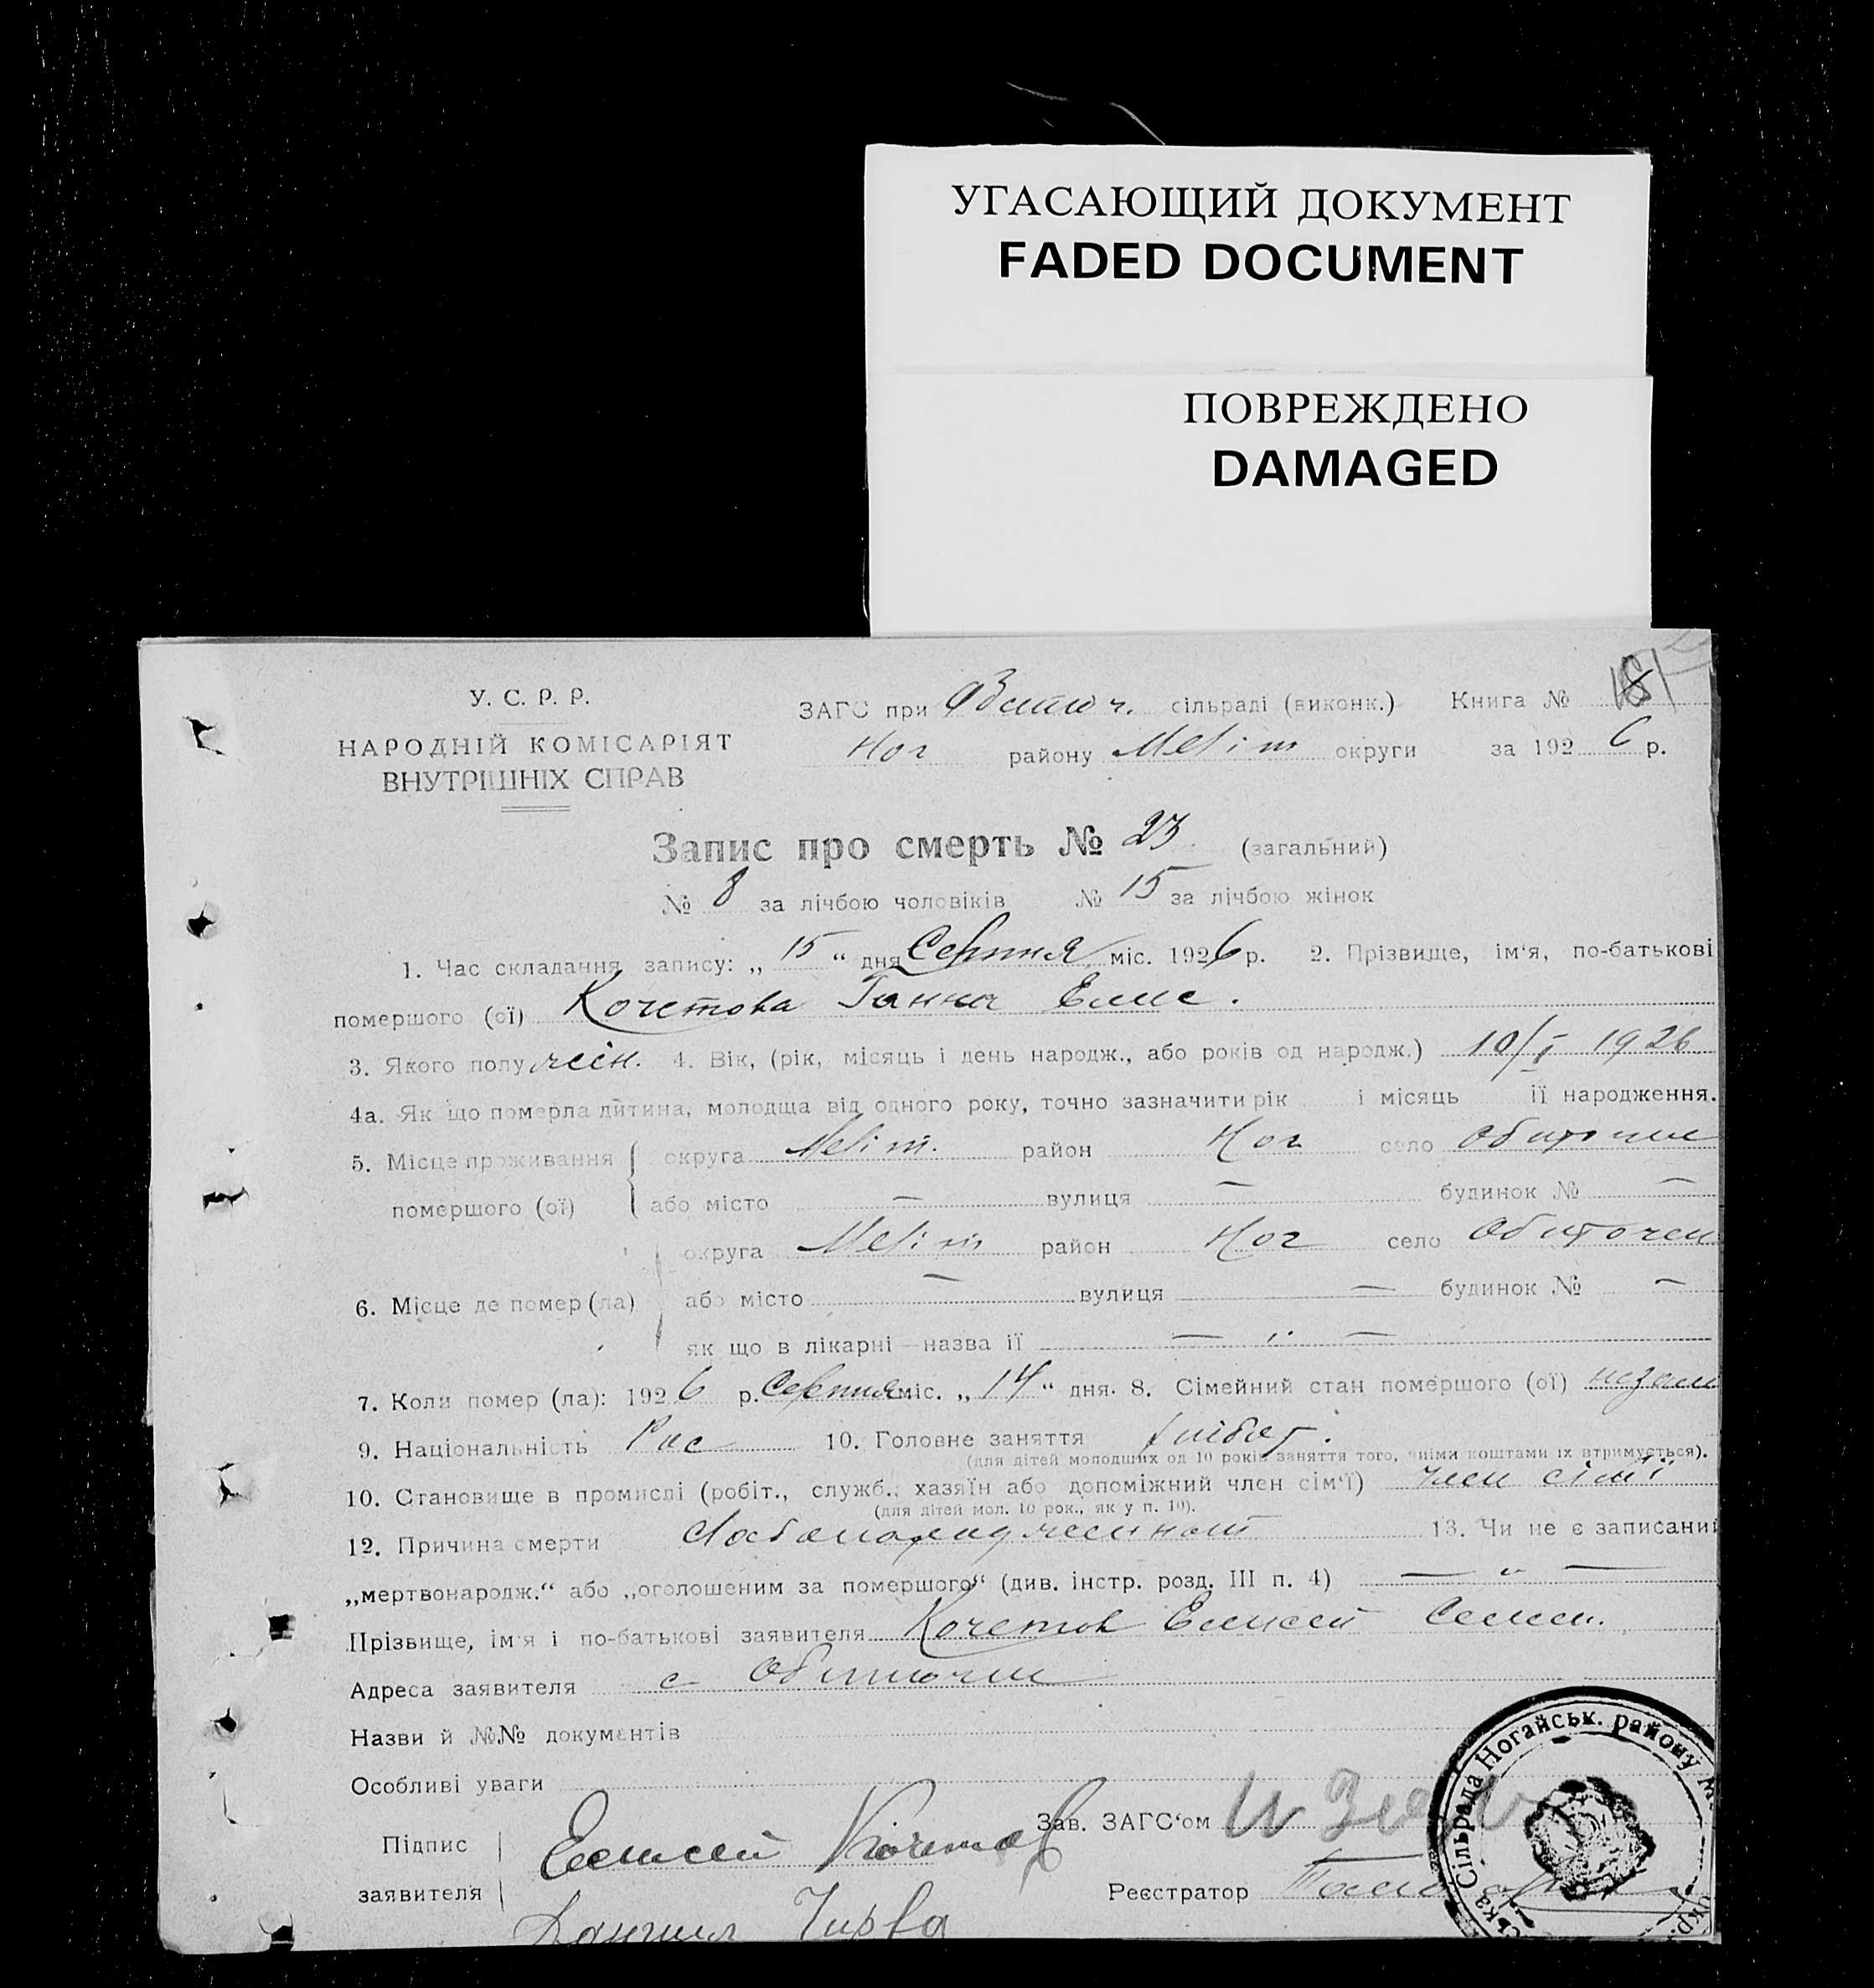 УГАСАЮЩИЙ ДОКУМЕНТ
FADED DOCUMENT
ПОВРЕЖДЕНО
DAMAGED
У. С. Р. Р.
НАРОДНІЙ КОМІСАРІЯТ
ВНУТРІШНІХ СПРАВ
ЗАГС при сільраді (виконк.) Книга №
Ног району Меліт округи за 1926 р.
Запис про смерть № 23 (загальний)
№ 8 за лічбою чоловіків № 15 за лічбою жінок
1. Час складання запису: „ 15 “ дня Серпня міс. 1926 р. 2. Прізвище, ім‘я, по-батькові
помершого (ої) Кочетова Ганна Елис.
3. Якого полу жін. 4. Вік, (рік, місяць і день народж., або років од народж.) 10/I 1926
4а. Як що померла дитина, молодща від одного року, точно зазначити рік і місяць її народження.
5. Місце проживання округа Меліт. район Ног село Обиточне
помершого (ої) або місто — вулиця — будинок № —
округа Меліт район Ног село Обиточен
6. Місце де помер (ла) або місто — вулиця — будинок № —
як що в лікарні—назва її — „ —
7. Коли помер (ла): 1926 р. Серпня міс. „ 14 “ дня. 8. Сімейний стан помершого (ої) незам
9. Національність Рус 10. Головне заняття хлібор.
(для дітей молодших од 10 років заняття того, чиїми коштами їх втримується).
10. Становище в промислі (робіт., служб., хазяїн або допоміжний член сім‘ї) член сім'ї
(для дітей мол. 10 рок., як у п. 10).
12. Причина смерти 13. Чи не є записаний
„мертвонародж.“ або „оголошеним за помершого“ (див. інстр. розд. III п. 4) — „ —
Прізвище, ім‘я і по-батькові заявителя Кочетов Елисей Семен.
Адреса заявителя с Обиточне
Назви й №№ документів
Особливі уваги
Підпис заявителя Елисей Кочетов
Зав. ЗАГС‘ом
Реєстратор
Данило
Сільрада Ногайськ. району